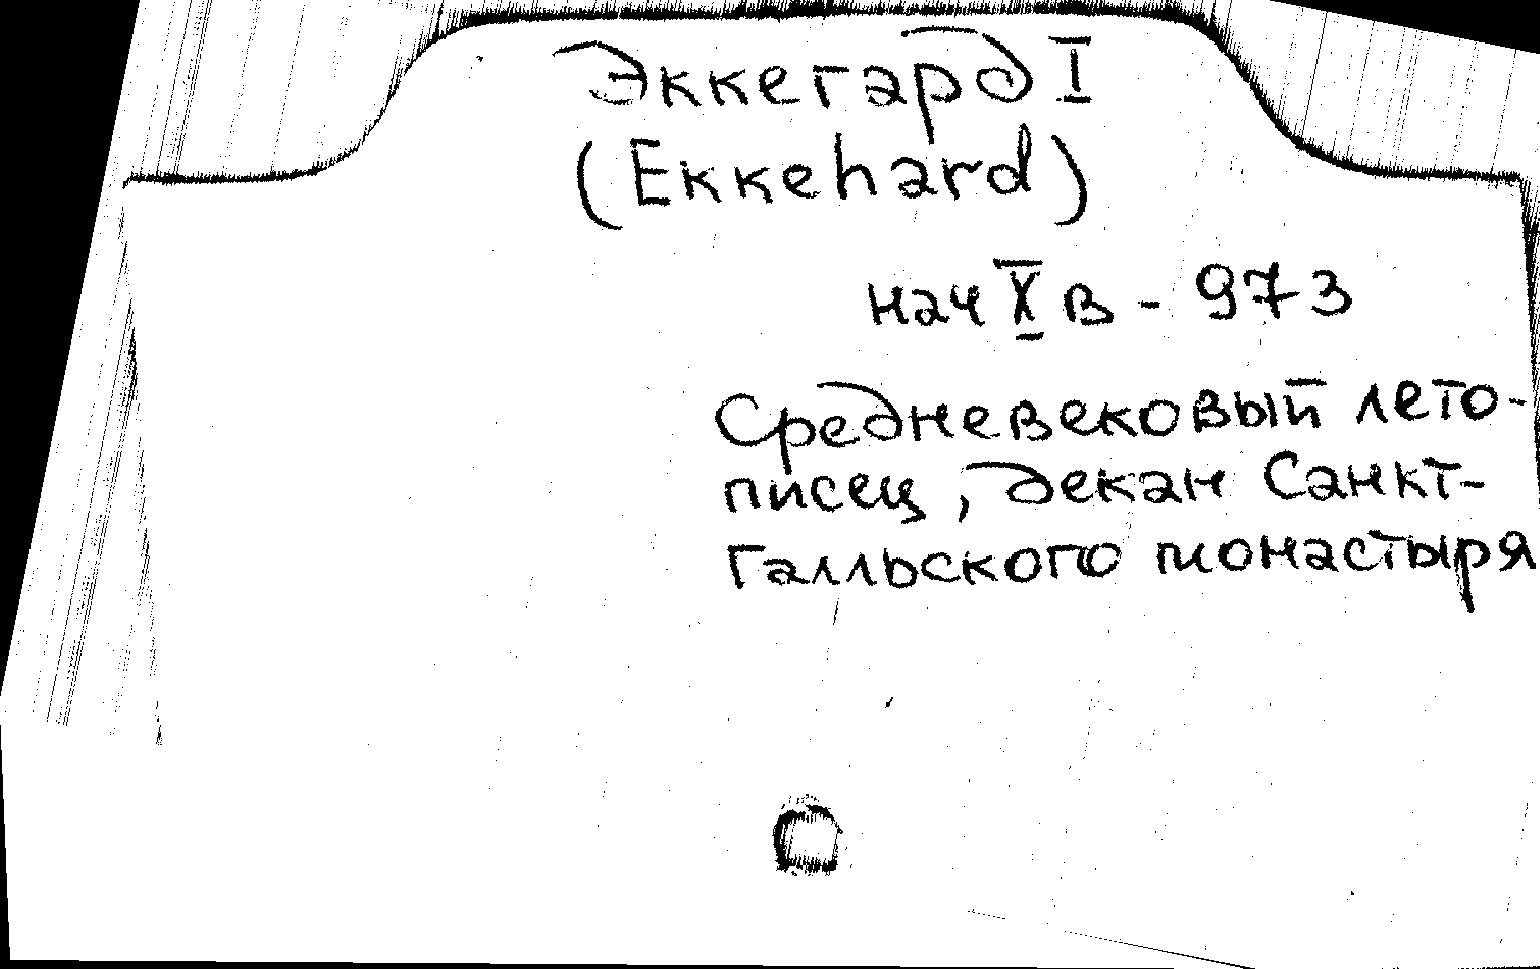 Эккегард I
(Ekkehard)
нач X в - 973
Средневековый лето-
писец, декан Санкт-
Галльского монастыря